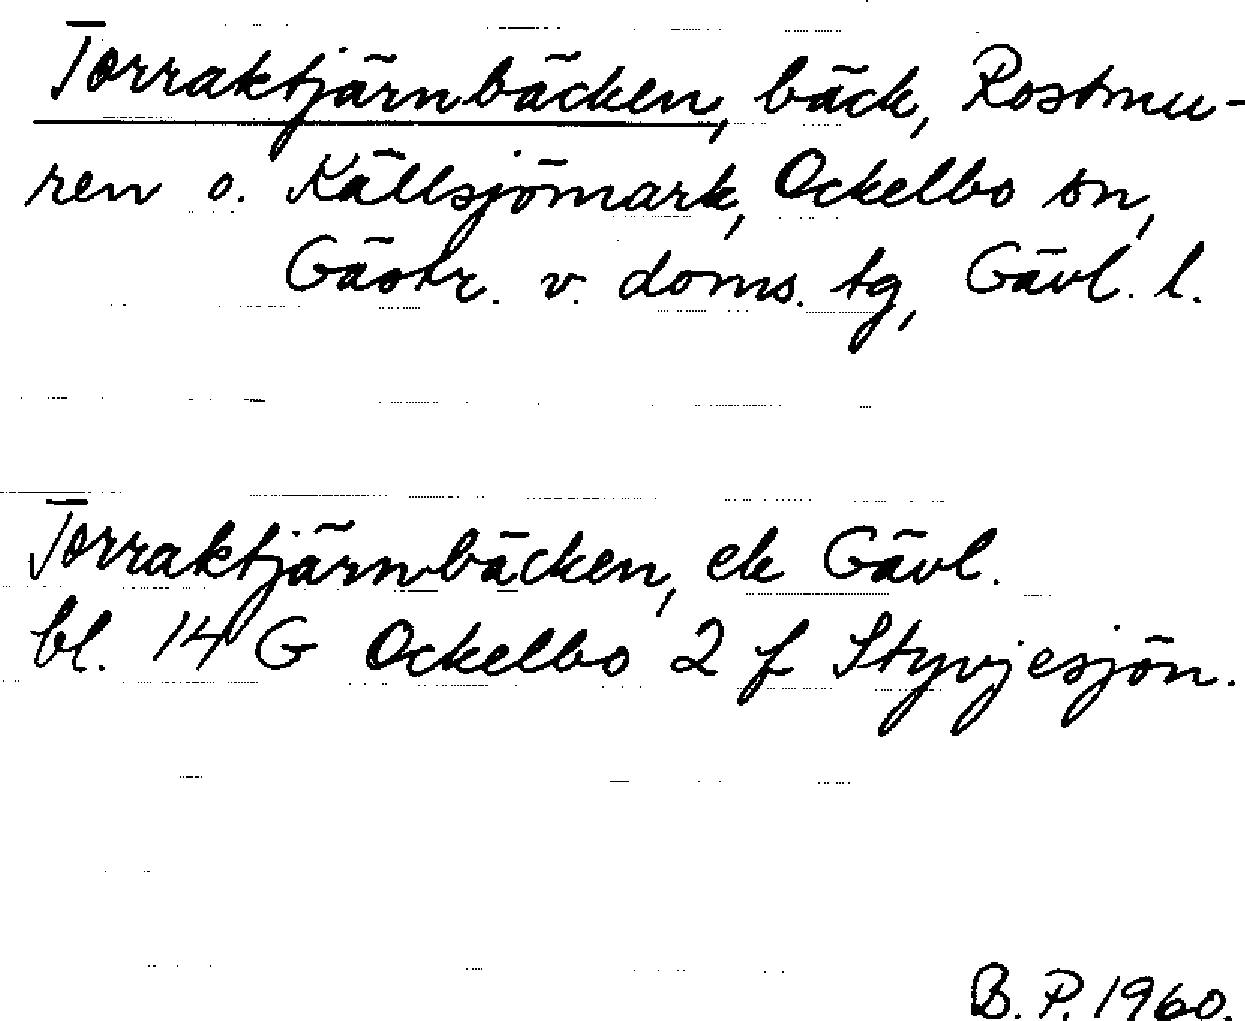 Torraktjärnbäcken, bäck, Rostmu-
ren o. Källsjömark, Ockelbo sn,
Gästr. v. doms. tg, Gävl. l.
Torraktjärnbäcken, ek Gävl.
bl. 14 G Ockelbo 2 f Styvjesjön.
B. P. 1960.